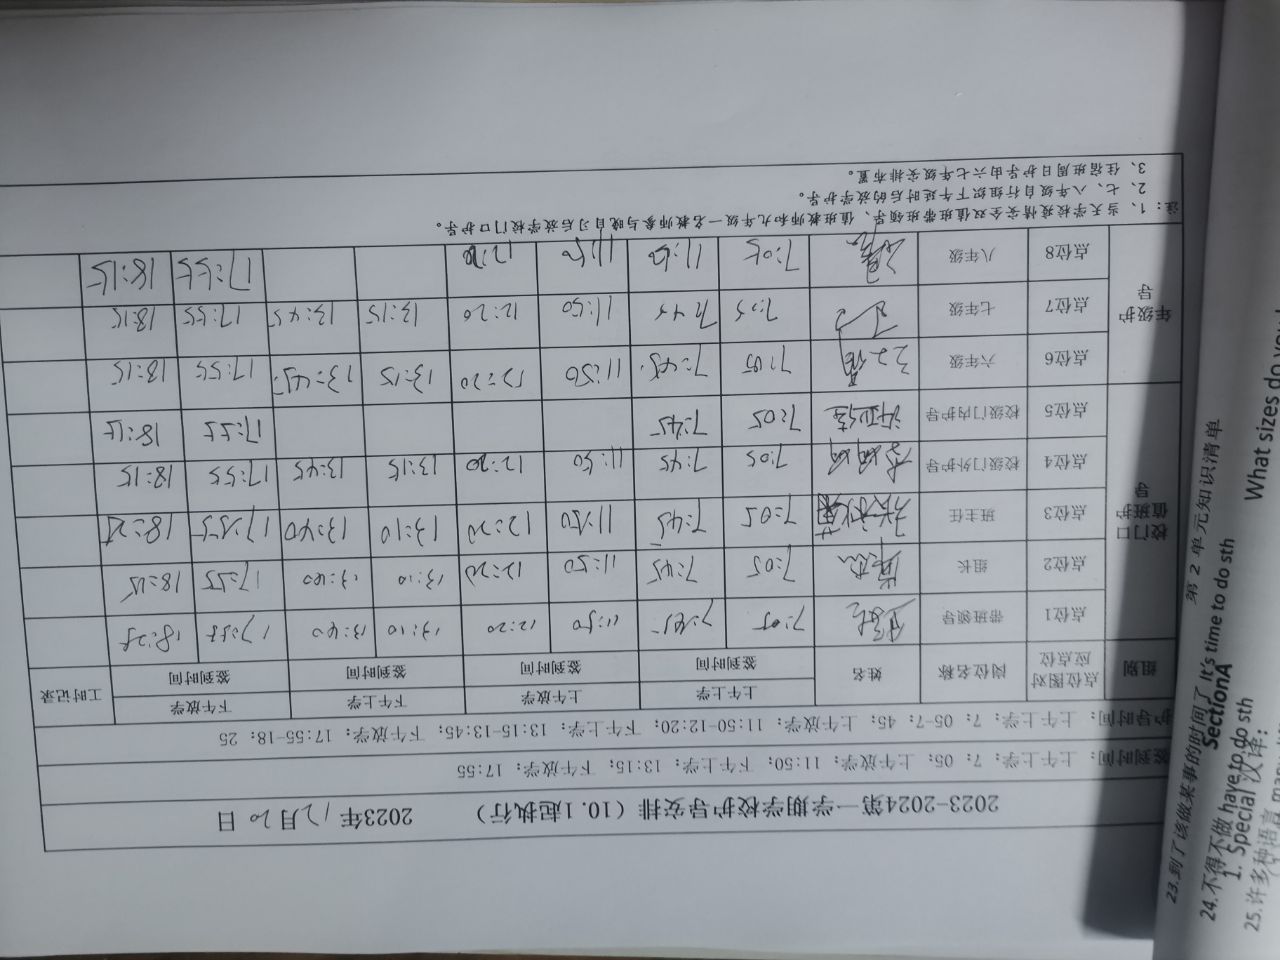 2023-2024第一学期学校护导安排（10.1起执行） 2023年12月20日
签到时间：上午上学：7：05；上午放学：11:50；下午上学：13:15；下午放学：17:55
护导时间：上午上学：7：05-7：45；上午放学：11:50-12:20；下午上学：13:15-13:45；下午放学：17:55-18：25
组别 点位图对应点位 岗位名称 姓名 上午上学 上午放学 下午上学 下午放学 工时记录
签到时间 签到时间 签到时间 签到时间
校门口值班护导
点位1 带班领导 7:05 7:45 11:50 12:20 13:10 13:40 17:55 18:25
点位2 组长 7:05 7:45 11:50 12:20 13:10 13:40 17:55 18:25
点位3 班主任 7:05 7:45 11:50 12:20 13:10 13:40 17:55
点位4 校级门外护导 7:05 7:45 11:50 12:20 13:15 13:45 17:55 18:15
点位5 校级门内护导 7:05 7:45 17:55 18:15
年级护导
点位6 六年级 7:05 7:45 11:50 12:20 13:15 13:45 17:55 18:15
点位7 七年级 7:05 7:45 11:50 12:20 13:15 13:45 17:55 18:15
点位8 八年级 7:05 11:50 17:55 18:15
注：1、当天学校疫情安全双值班带班领导、值班教师和九年级一名教师参与晚自习后放学校门口护导。
2、七、八年级自行组织下午延时后的放学护导。
3、住宿班周日护导由六七年级安排布置。
23.到了该做某事的时间了 It's time to do sth
24.不得不做 have to do sth
25.许多种语言
第 2 单元知识清单
SectionA
1. Special 汉译：
What sizes do you